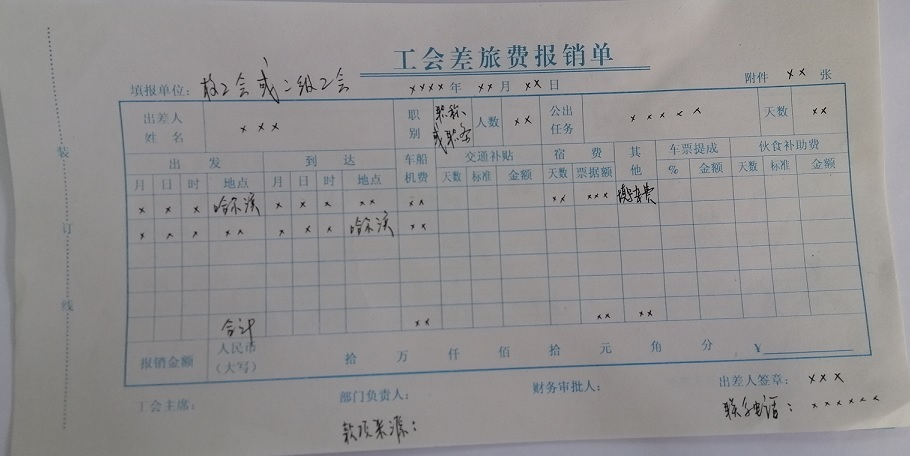 工会差旅费报销单
填报单位: 校工会或二级工会 ×××× 年 ×× 月 ×× 日 附件 ×× 张
出差人姓名 ××× 职别 职称或职务 人数 ×× 公出任务 ××××× 天数 ××
出发 到达 车船机费 交通补贴 宿费 其他 车票提成 伙食补助费
月 日 时 地点 月 日 时 地点 天数 标准 金额 天数 票据额 % 金额 天数 标准 金额
× × × 哈尔滨 × × × ×× ×× ×× ×××
× × × ×× × × × 哈尔滨 ××
合计 ×× ×× ××
报销金额 人民币(大写) 拾 万 仟 佰 拾 元 角 分 ¥
工会主席: 部门负责人: 财务审批人: 出差人签章: ×××
款项来源: 联系电话: ××××××
装订线